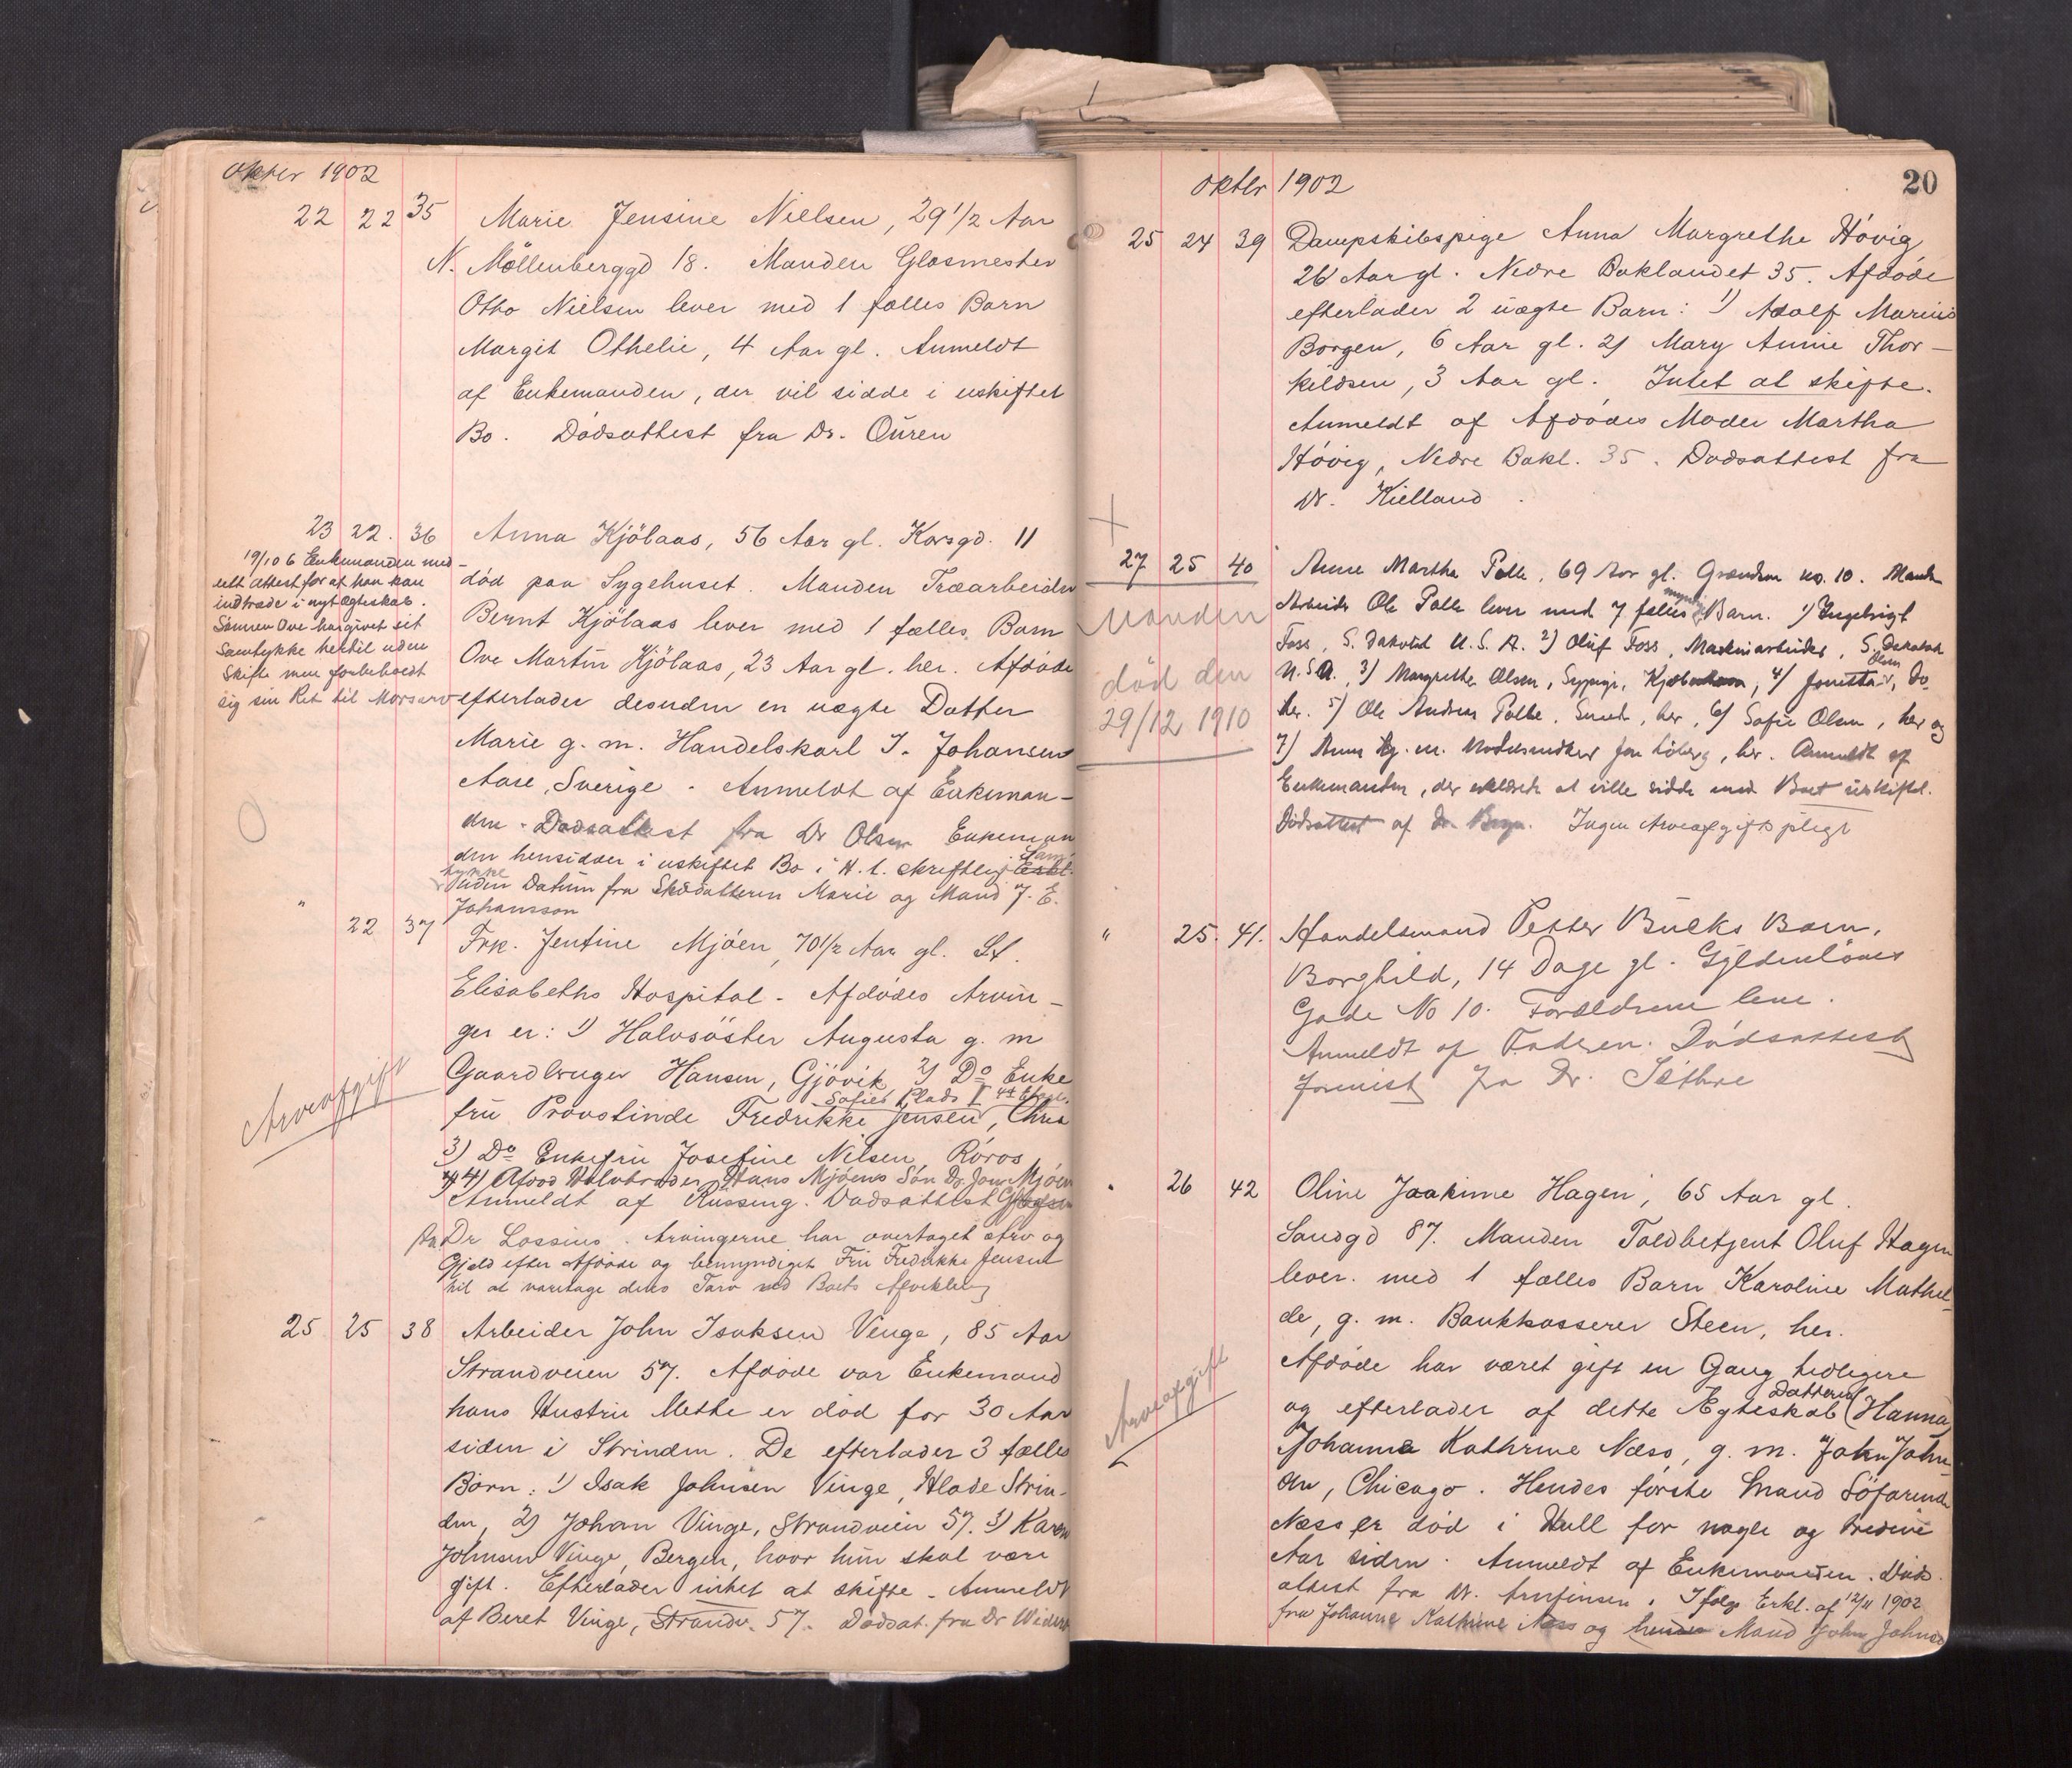 Oktbr 1902
22 22 35 Marie Jensine Nielsen, 29 1/2 Aar
N. Möllenberggd 18. Manden Glasmester
Otto Nielsen lever med 1 fælles Barn
Margit Othelie, 4 Aar gl. Anmeldt
af Enkemanden, der vil sidde i uskiftet
Bo. Dødsattest fra Dr. Øuren
23 22. 36 Anna Kjölaas, 56 Aar gl. Korsgd. 11
død paa Sygehuset. Manden Træarbeider
Bernt Kjölaas lever med 1 fælles Barn
Ove Martin Kjölaas, 23 Aar gl. her. Afdöde
efterlader desuden en uægte Datter
Marie g. m. Handelskarl J. Johansen
Aase, Sverige. Anmeldt af Enkeman-
den. Dødsattest fra Dr Olsen Enkeman
den hensidder i uskiftet Bo i H. t. skriftlig Sam-
tykke uden Datum fra Skeddatteren Marie og Mand J. E.
Johansson
19/10 6 Enkemanden med-
delt attest for at han kan
indtræde i nyt Ægteskab.
Sønnen Ove har givet sit
Samtykke hertil uden
Skifte men forbeholdt
sig sin Ret til Morsarv
" 22 37 Frk. Jentine Mjøen, 70 1/2 Aar gl. St.
Elisabeths Hospital. Afdødes Arvin-
ger er: 1) Halvsöster Augusta g. m
Gaardbruger Hansen, Gjövik 2) Do Enke
fru Provstinde Fredrikke Jensen, Chra
Sofies Plads I 4de Etage.
3) Do Enkefru Josefine Nilsen Röros
4) Afdød Halvbroder Hans Mjöens Sön Dr. Jon Mjöen
Anmeldt af Rüssing. Dødsattest
fra Dr Lossius. Arvingerne har overtaget Arv og
Gjæld efter Afdøde og bemyndiget Fru Fredrikke Jensen
til at varetage deres Tarv ved Boets Afvikling
Arveafgift
25 25 38 Arbeider John Isaksen Vinge, 85 Aar
Strandveien 57. Afdöde var Enkemand
hans Hustru Mette er död for 30 Aar
siden i Strinden. De efterlader 3 fælles
Børn: 1) Isak Johnsen Vinge, Hlade Strin-
den, 2) Johan Vinge, Strandveien 57. 3) Karen
Johnsen Vinge, Bergen, hvor hun skal være
gift. Efterlader intet at skifte. Anmeldt
af Beret Vinge, Strandv. 57. Dødsat. fra Dr
Oktbr 1902
20
25 24 39 Dampskibspige Anna Margrethe Hövig
26 Aar gl. Nedre Baklandet 35. Afdöde
efterlader 2 uægte Barn: 1) Adolf Marius
Borgen, 6 Aar gl. 2) Mary Annie Thor-
kildsen, 3 Aar gl. Intet at skifte.
Anmeldt af Afdödes Moder Martha
Hövig, Nedre Bakl. 35. Dødsattest fra
Dr. Kielland.
27 25 40 Anne Martha Polle, 69 Aar gl. no. 10. Manden
Arbeider Ole Polle lever med 7 fælles myndige Barn. 1) Ingebrigt
Foss, S. Dakota U. S. A. 2) Oluf Foss, Maskinarbeider, S. Dakota
U.S.A., 3) Margrethe Olsen, Sypige, 4) Jonetta Olsen, Do
her. 5) Ole Andreas Polle, Smed, her, 6) Sofie Olsen, her og
7) Anna g. m. Modelsnedker Jon Löberg, her. Anmeldt af
Enkemanden, der erklærede at ville sidde med Boet uskiftet.
Dødsattest af Dr. Ingen Arveafgiftspligt
Manden
död den
29/12 1910
" 25. 41. Handelsmand Petter Bulks Barn,
Borghild, 14 Dage gl. Gyldenlöves
Gade No 10. Forældrene leve.
Anmeldt af Faderen. Dödsattest
forevist fra Dr. Sæthre
" 26 42 Oline Joakime Hagen, 65 Aar gl.
Sandgd 87. Manden Toldbetjent Oluf Hagen
lever med 1 fælles Barn Karoline Mathil-
de, g. m. Bankkasserer Steen, her.
Afdöde har været gift en Gang tidligere
og efterlader af dette Ægteskab Datteren (Hanna)
Johanna Kathrine Næss, g. m. John John-
sen, Chicago. Hendes første Mand Söfarende
Næss er död i Hull for nogle og tredive
Aar siden. Anmeldt af Enkemanden. Døds-
attest fra Dr. Arnfinsen. Ifølge Erkl. af 12/11 1902
fra Johanne Kathrine Næss og hendes Mand John Johnsen
Arveafgift